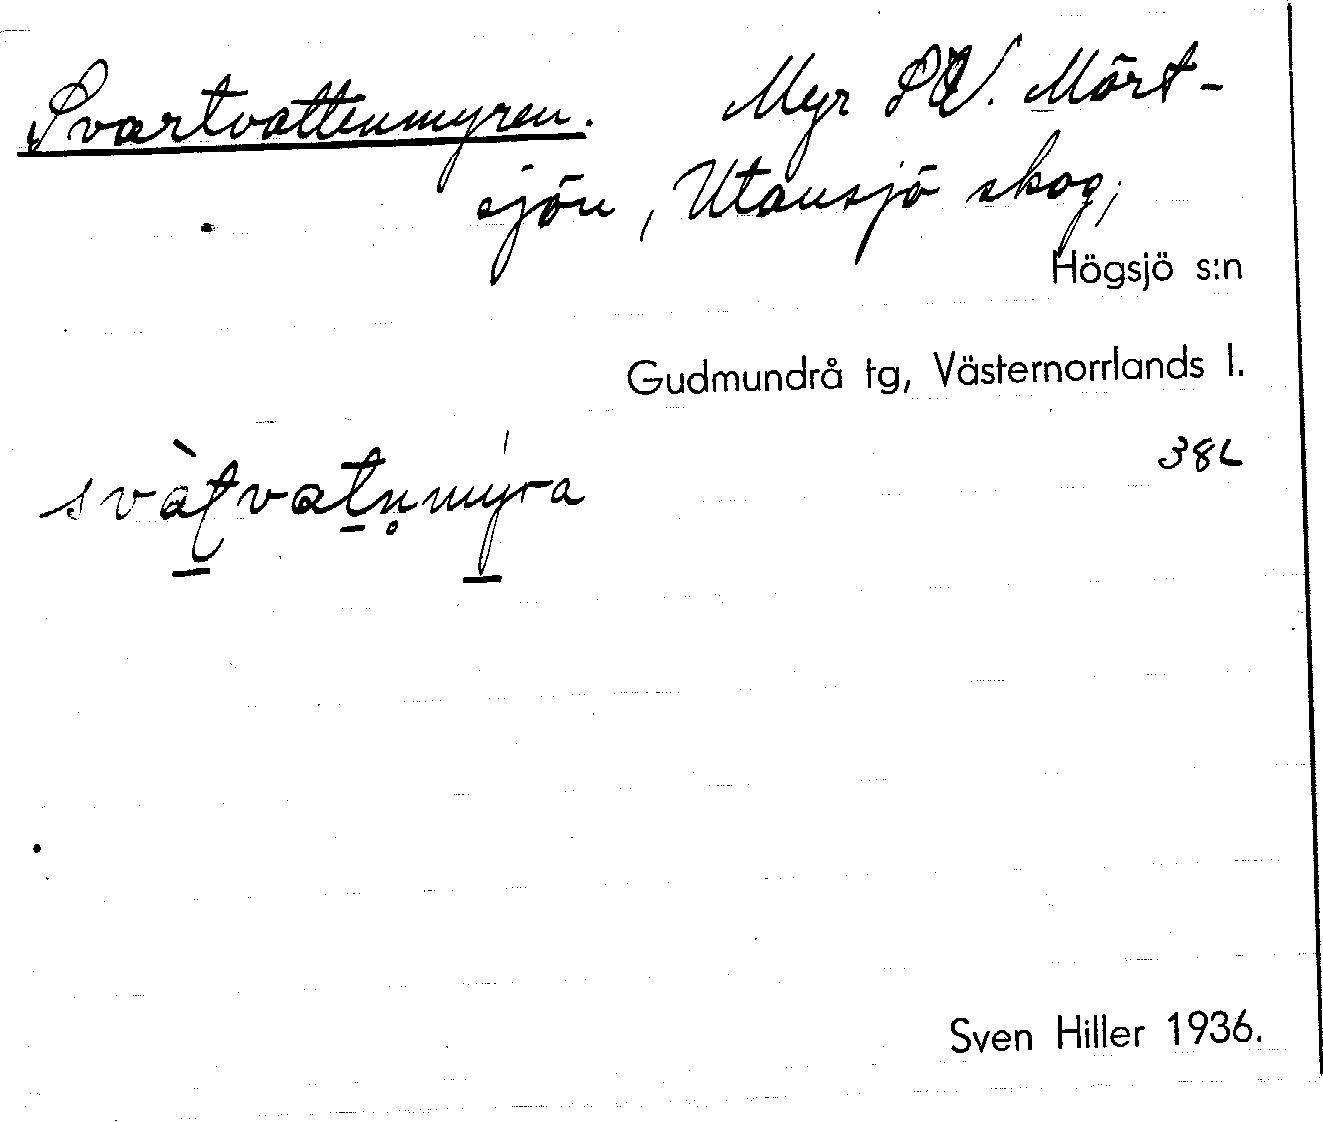 Svartvattenmyren. Myr SV. Mört-
sjön, Utansjö skog,
Högsjö s:n
Gudmundrå tg, Västernorrlands l.
38L
svàt̠vat̠n̥mýra
Sven Hiller 1936.